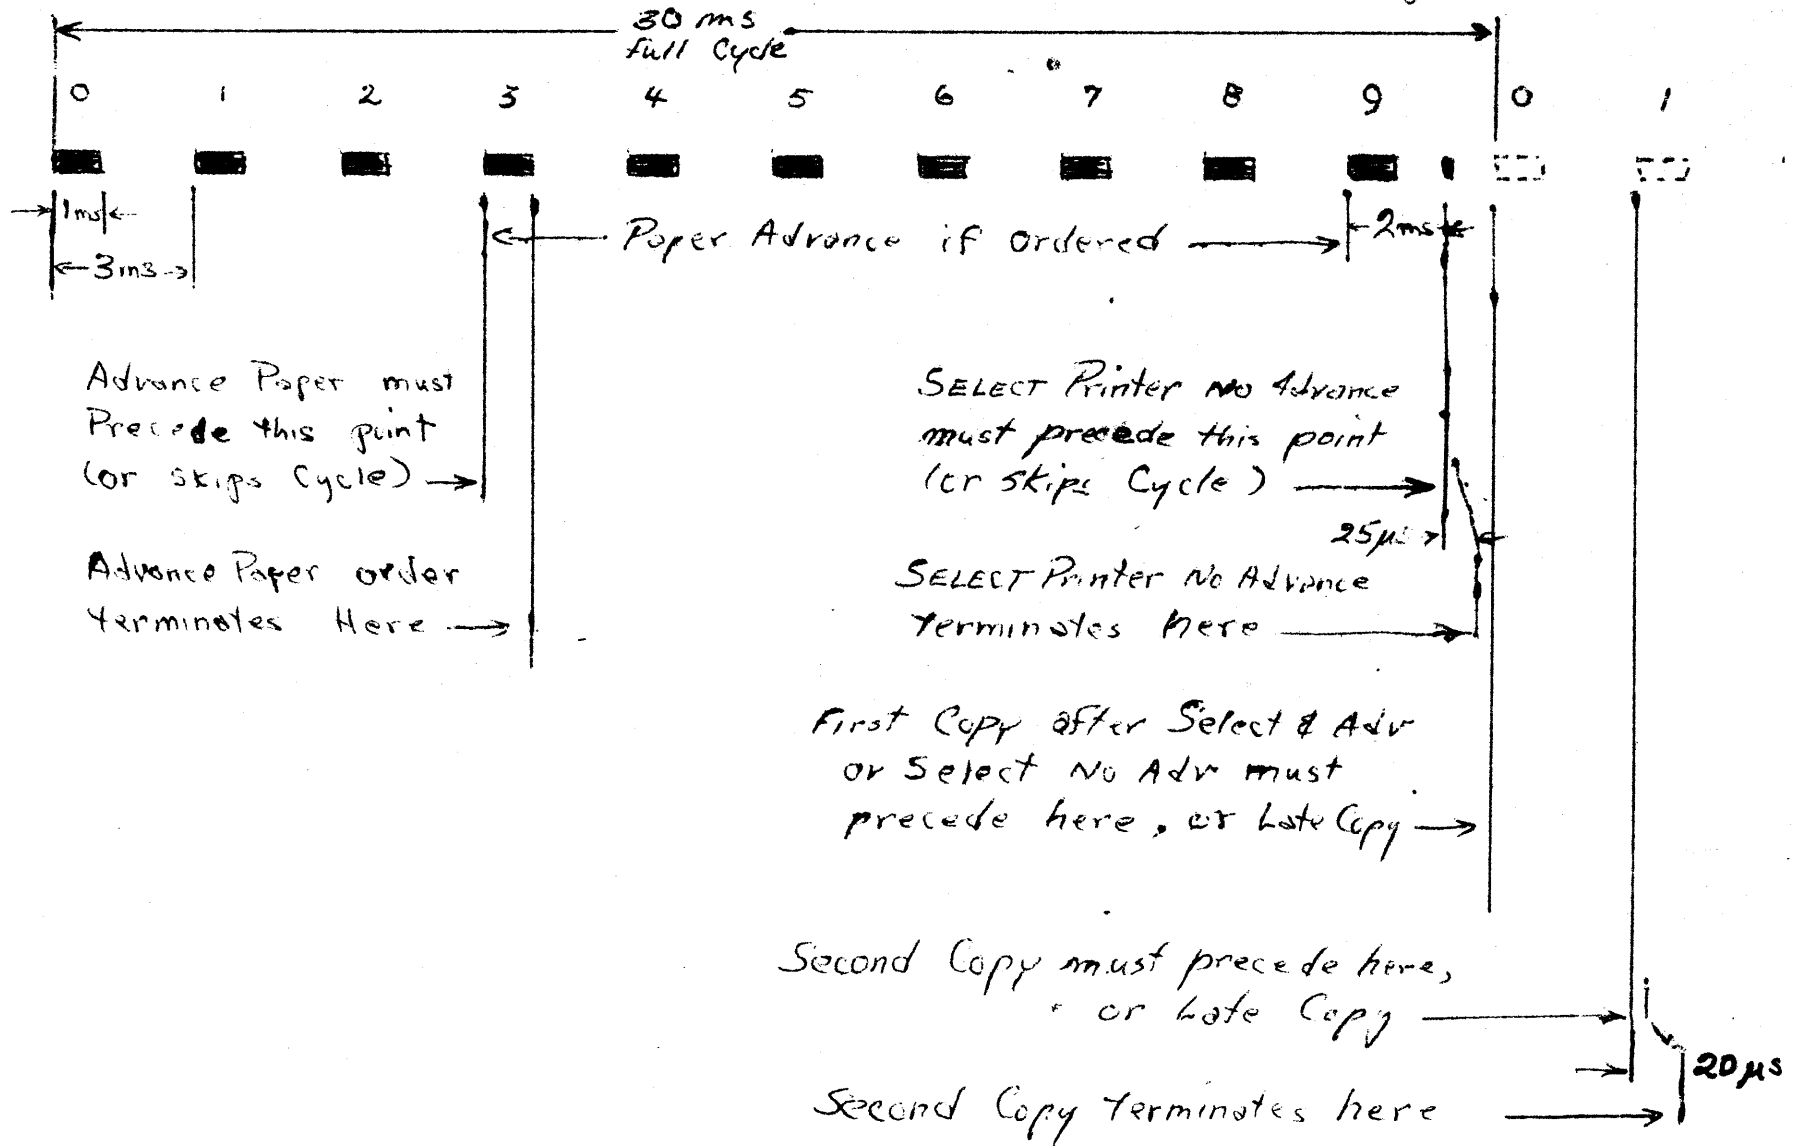 30 ms
Full Cycle
0 1 2 3 4 5 6 7 8 9 0 1
1ms
3ms
Paper Advance if ordered
2ms
Advance Paper must
Precede this point
(or skips Cycle)
SELECT Printer No Advance
must precede this point
(or skips Cycle)
25μs
Advance Paper order
terminates Here
SELECT Printer No Advance
terminates here
First Copy after Select & Adv
or Select No Adv must
precede here, or Late Copy
Second Copy must precede here,
or Late Copy
20 μs
Second Copy terminates here